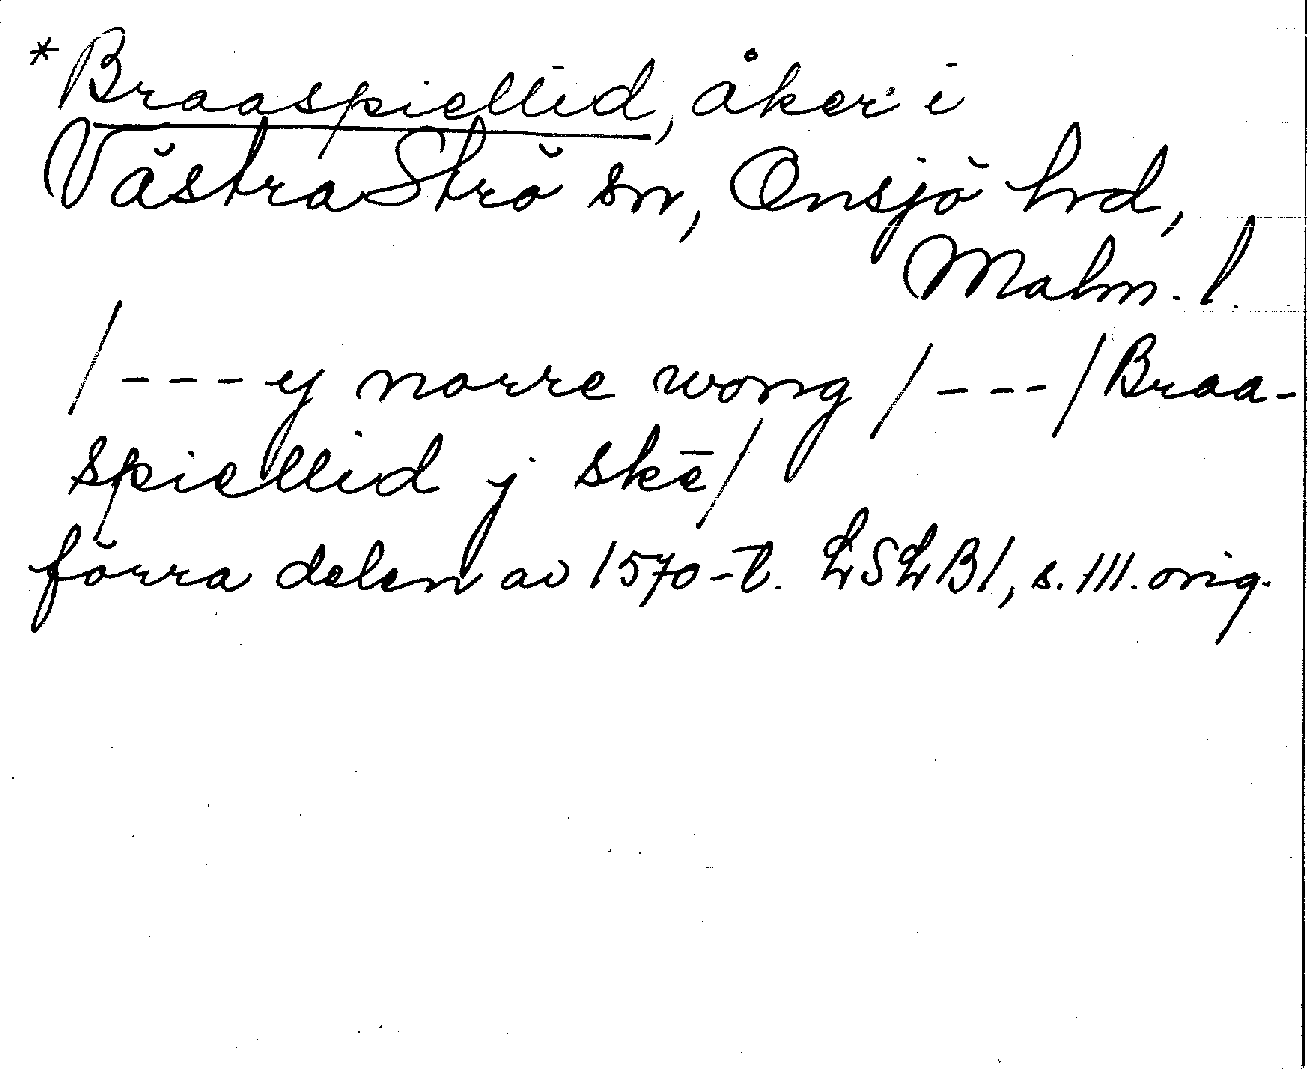 *Braaspiellid, åker i
Västra Strö sn, Onsjö hd,
Malm. l.
/---y norre wong /---/ Braa-
spiellid j skē/
förra delen av 1570-t. LSLB1, s. 111. orig.